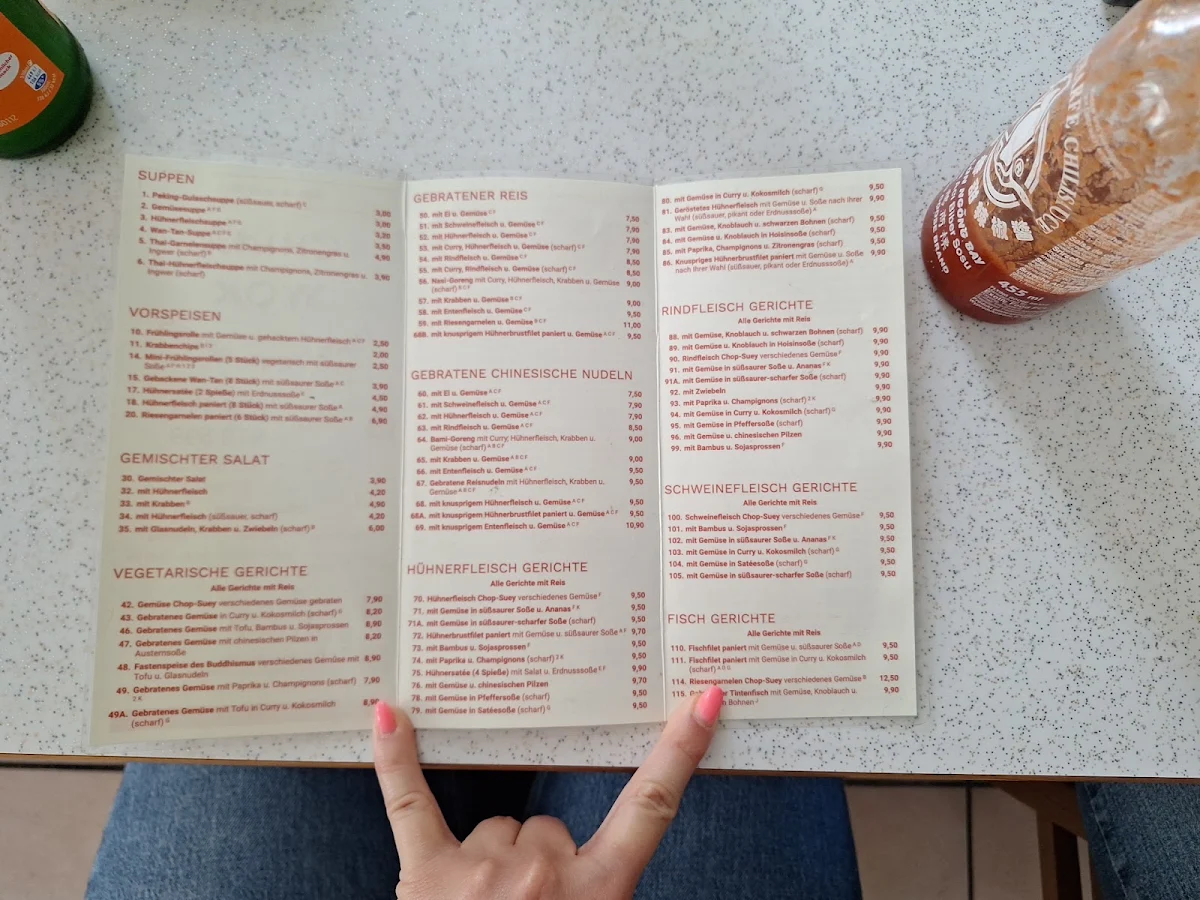 SUPPEN
1. Peking-Gulaschsuppe (süßsauer, scharf) 3,00
2. Gemüsesuppe 3,00
3. Hühnerfleischsuppe 3,20
4. Wan-Tan-Suppe 3,50
5. Thai-Garnelensuppe mit Champignons, Zitronengras u. 4,90
Ingwer (scharf)
6. Thai-Hühnerfleischsuppe mit Champignons, Zitronengras u. 3,90
Ingwer (scharf)
VORSPEISEN
10. Frühlingsrolle mit Gemüse u. gehacktem Hühnerfleisch 2,50
11. Krabbenchips 2,00
14. Mini-Frühlingsrollen (5 Stück) vegetarisch mit süßsaurer 2,50
Soße
15. Gebackene Wan-Tan (8 Stück) mit süßsaurer Soße 3,90
17. Hühnersatée (2 Spieße) mit Erdnusssoße 4,50
18. Hühnerfleisch paniert (8 Stück) mit süßsaurer Soße 4,90
20. Riesengarnelen paniert (5 Stück) mit süßsaurer Soße 6,90
GEMISCHTER SALAT
30. Gemischter Salat 3,90
32. mit Hühnerfleisch 4,20
33. mit Krabben 4,90
34. mit Hühnerfleisch (süßsauer, scharf) 4,20
35. mit Glasnudeln, Krabben u. Zwiebeln (scharf) 6,00
VEGETARISCHE GERICHTE
Alle Gerichte mit Reis
42. Gemüse Chop-Suey verschiedenes Gemüse gebraten 7,90
43. Gebratenes Gemüse in Curry u. Kokosmilch (scharf) G 8,20
46. Gebratenes Gemüse mit Tofu, Bambus u. Sojasprossen 8,90
47. Gebratenes Gemüse mit chinesischen Pilzen in 8,20
Austernsoße
48. Fastenspeise des Buddhismus verschiedenes Gemüse mit 8,90
Tofu u. Glasnudeln
49. Gebratenes Gemüse mit Paprika u. Champignons (scharf) 7,90
2 K
49A. Gebratenes Gemüse mit Tofu in Curry u. Kokosmilch 8,90
(scharf) G
GEBRATENER REIS
50. mit Ei u. Gemüse C F 7,50
51. mit Schweinefleisch u. Gemüse C F 7,90
52. mit Hühnerfleisch u. Gemüse C F 7,90
53. mit Curry, Hühnerfleisch u. Gemüse (scharf) C F 7,90
54. mit Rindfleisch u. Gemüse C F 8,50
55. mit Curry, Rindfleisch u. Gemüse (scharf) C F 8,50
56. Nasi-Goreng mit Curry, Hühnerfleisch, Krabben u. Gemüse 9,00
(scharf) B C F
57. mit Krabben u. Gemüse B C F 9,00
58. mit Entenfleisch u. Gemüse C F 9,50
59. mit Riesengarnelen u. Gemüse B C F 11,00
68B. mit knusprigem Hühnerbrustfilet paniert u. Gemüse A C F 9,50
GEBRATENE CHINESISCHE NUDELN
60. mit Ei u. Gemüse A C F 7,50
61. mit Schweinefleisch u. Gemüse A C F 7,90
62. mit Hühnerfleisch u. Gemüse A C F 7,90
63. mit Rindfleisch u. Gemüse A C F 8,50
64. Bami-Goreng mit Curry, Hühnerfleisch, Krabben u. 9,00
Gemüse (scharf) A B C F
65. mit Krabben u. Gemüse A B C F 9,00
66. mit Entenfleisch u. Gemüse A C F 9,50
67. Gebratene Reisnudeln mit Hühnerfleisch, Krabben u. 9,50
Gemüse A B C F
68. mit knusprigem Hühnerfleisch u. Gemüse A C F 9,50
68A. mit knusprigem Hühnerbrustfilet paniert u. Gemüse A C F 9,50
69. mit knusprigem Entenfleisch u. Gemüse A C F 10,90
HÜHNERFLEISCH GERICHTE
Alle Gerichte mit Reis
70. Hühnerfleisch Chop-Suey verschiedenes Gemüse F 9,50
71. mit Gemüse in süßsaurer Soße u. Ananas F K 9,50
71A. mit Gemüse in süßsaurer-scharfer Soße (scharf) 9,50
72. Hühnerbrustfilet paniert mit Gemüse u. süßsaurer Soße A F 9,70
73. mit Bambus u. Sojasprossen F 9,50
74. mit Paprika u. Champignons (scharf) 2 K 9,50
75. Hühnersatée (4 Spieße) mit Salat u. Erdnusssoße E F 9,90
76. mit Gemüse u. chinesischen Pilzen 9,70
78. mit Gemüse in Pfeffersoße (scharf) 9,50
79. mit Gemüse in Satéesoße (scharf) G 9,50
80. mit Gemüse in Curry u. Kokosmilch (scharf) G 9,50
81. Geröstetes Hühnerfleisch mit Gemüse u. Soße nach Ihrer 9,90
Wahl (süßsauer, pikant oder Erdnusssoße) A
83. mit Gemüse, Knoblauch u. schwarzen Bohnen (scharf) 9,50
84. mit Gemüse u. Knoblauch in Hoisinsoße (scharf) 9,50
85. mit Paprika, Champignons u. Zitronengras (scharf) 9,50
86. Knuspriges Hühnerbrustfilet paniert mit Gemüse u. Soße 9,90
nach Ihrer Wahl (süßsauer, pikant oder Erdnusssoße) A
RINDFLEISCH GERICHTE
Alle Gerichte mit Reis
88. mit Gemüse, Knoblauch u. schwarzen Bohnen (scharf) 9,90
89. mit Gemüse u. Knoblauch in Hoisinsoße (scharf) 9,90
90. Rindfleisch Chop-Suey verschiedenes Gemüse F 9,90
91. mit Gemüse in süßsaurer Soße u. Ananas F K 9,90
91A. mit Gemüse in süßsaurer-scharfer Soße (scharf) 9,90
92. mit Zwiebeln 9,90
93. mit Paprika u. Champignons (scharf) 2 K 9,90
94. mit Gemüse in Curry u. Kokosmilch (scharf) G 9,90
95. mit Gemüse in Pfeffersoße (scharf) 9,90
96. mit Gemüse u. chinesischen Pilzen 9,90
99. mit Bambus u. Sojasprossen F 9,90
SCHWEINEFLEISCH GERICHTE
Alle Gerichte mit Reis
100. Schweinefleisch Chop-Suey verschiedenes Gemüse F 9,50
101. mit Bambus u. Sojasprossen F 9,50
102. mit Gemüse in süßsaurer Soße u. Ananas F K 9,50
103. mit Gemüse in Curry u. Kokosmilch (scharf) G 9,50
104. mit Gemüse in Satéesoße (scharf) G 9,50
105. mit Gemüse in süßsaurer-scharfer Soße (scharf) 9,50
FISCH GERICHTE
Alle Gerichte mit Reis
110. Fischfilet paniert mit Gemüse u. süßsaurer Soße A D 9,50
111. Fischfilet paniert mit Gemüse in Curry u. Kokosmilch 9,50
(scharf) A D G
114. Riesengarnelen Chop-Suey verschiedenes Gemüse B 12,50
115. Tintenfisch mit Gemüse, Knoblauch u. 9,90
Bohnen J
455 ml
BRAND